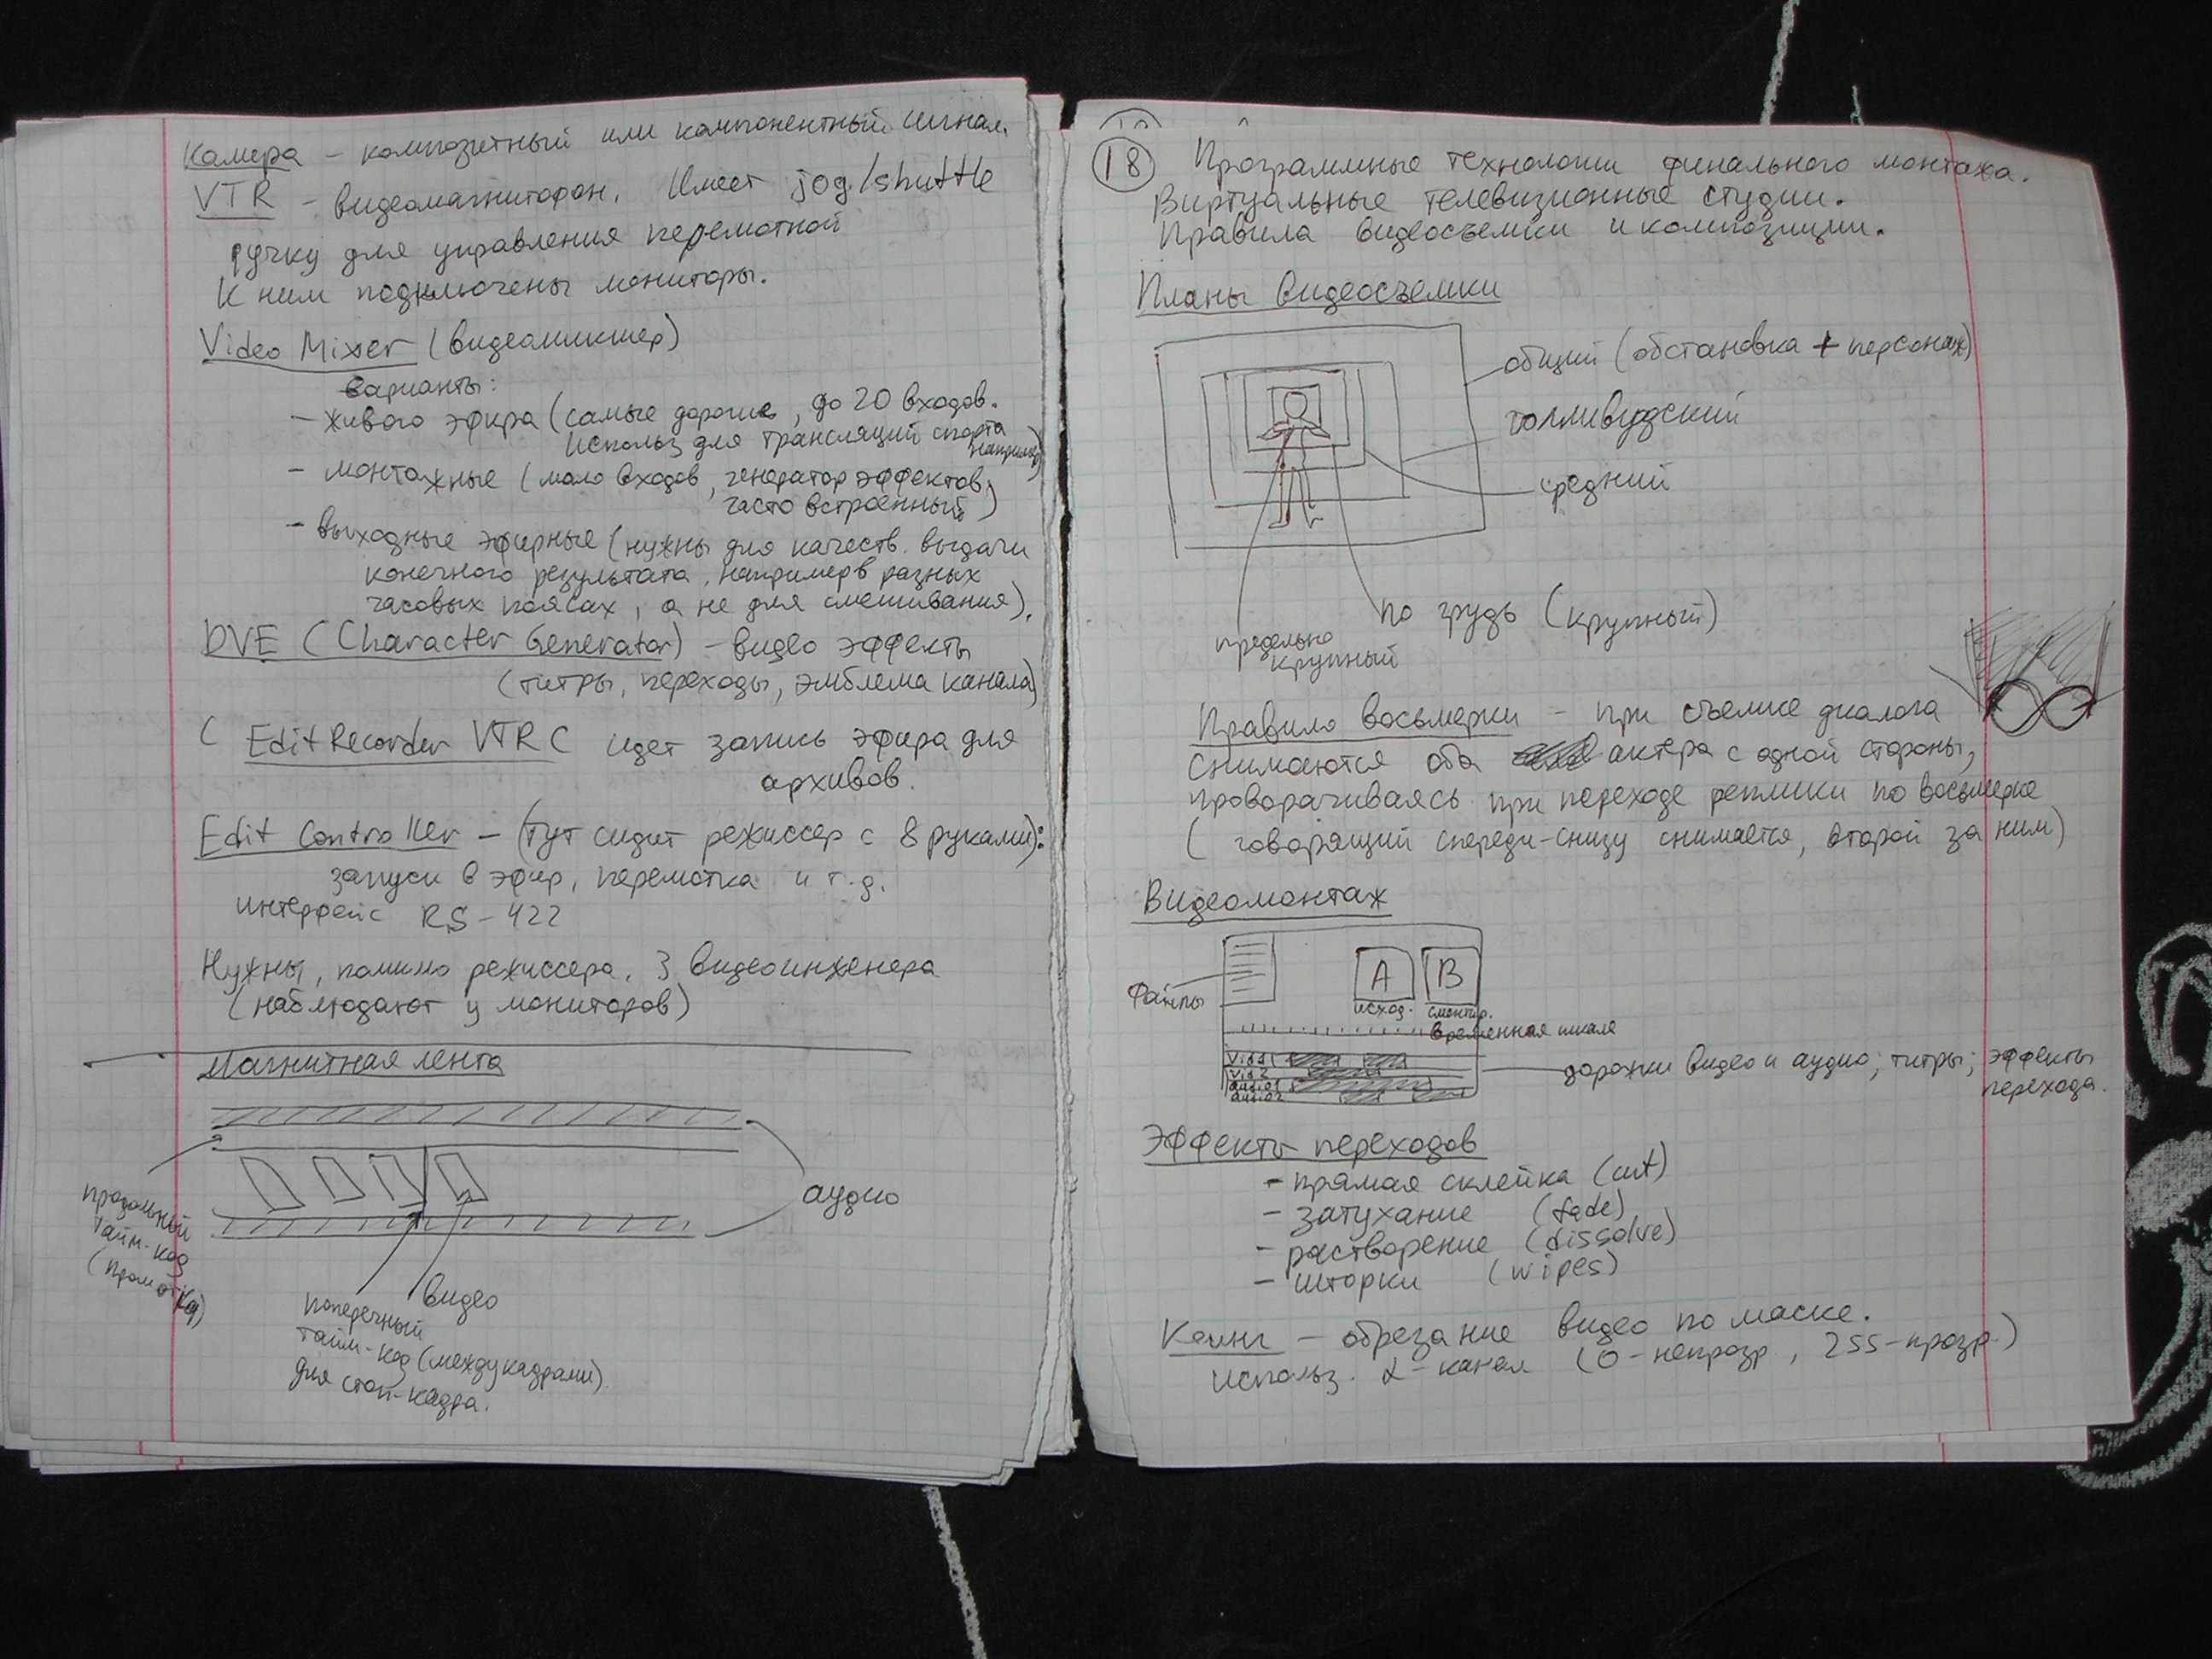 Камера – композитный или компонентный сигнал.
VTR – видеомагнитофон. Имеет jog/shuttle
ручку для управления перемоткой
К ним подключены мониторы.
Video Mixer (видеомикшер)
варианты:
– живого эфира (самые дорогие, до 20 входов.
Использ для трансляций спорта
например)
– монтажные (мало входов, генератор эффектов
часто встроенный)
– выходные эфирные (нужны для качеств. выдачи
конечного результата, например в разных
часовых поясах, а не для смешивания).
DVE (Character Generator) – видео эффекты
(титры, переходы, эмблема канала)
( Edit Recorder VTR С идет запись эфира для
архивов.
Edit Controller – (тут сидит режиссер с 8 руками):
запуск в эфир, перемотка и т.д.
интерфейс RS-422
Нужны, помимо режиссера, 3 видеоинженера
(наблюдают у мониторов)
Магнитная лента
аудио
продольный
тайм-код
(промотка)
видео
поперечный
тайм-код (между кадрами)
для стоп-кадра.
18 Программные технологии финального монтажа.
Виртуальные телевизионные студии.
Правила видеосъемки и композиции.
Планы видеосъемки
общий (обстановка + персонаж)
голливудский
средний
по грудь (крупный)
предельно
крупный
Правило восьмерки – при съемке диалога
снимаются оба актера с одной стороны,
проворачиваясь при переходе реплики по восьмерке
( говорящий спереди-снизу снимается, второй за ним)
Видеомонтаж
файлы
A B
исход. смонтир.
временная шкала
Vid1
Vid2
audio1
audio2
дорожки видео и аудио; титры; эффекты
перехода.
Эффекты переходов
– прямая склейка (cut)
– затухание (fade)
– растворение (dissolve)
– шторки (wipes)
Кеинг – обрезание видео по маске.
Использ. α-канал (0-непрозр, 255-прозр.)